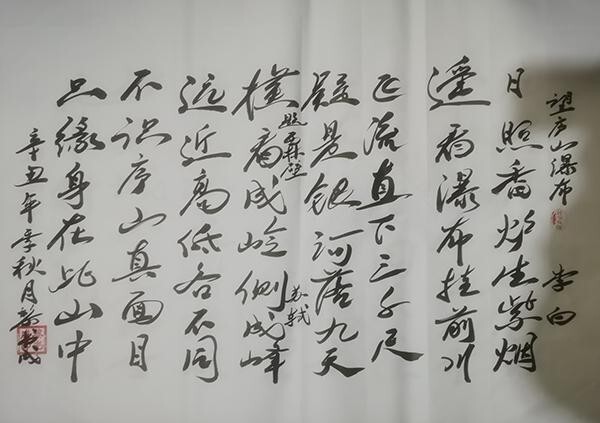 望庐山瀑布 李白
日照香炉生紫烟
遥看瀑布挂前川
飞流直下三千尺
疑是银河落九天
题西林壁 苏轼
横看成岭侧成峰
远近高低各不同
不识庐山真面目
只缘身在此山中
辛丑年季秋月